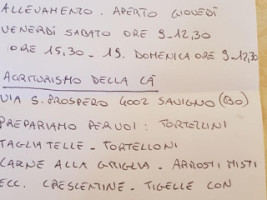 ALLEVAMENTO. APERTO GIOVEDÌ
VENERDÌ SABATO ORE 9-12,30
ORE 15,30 - 19. DOMENICA ORE 9-12,30
AGRITURISMO DELLA CÀ
VIA S. PROSPERO 4002 SAVIGNO (BO)
PREPARIAMO PER VOI: TORTELLINI
TAGLIATELLE - TORTELLONI
CARNE ALLA GRIGLIA - ARROSTI MISTI
ECC. CRESCENTINE - TIGELLE CON